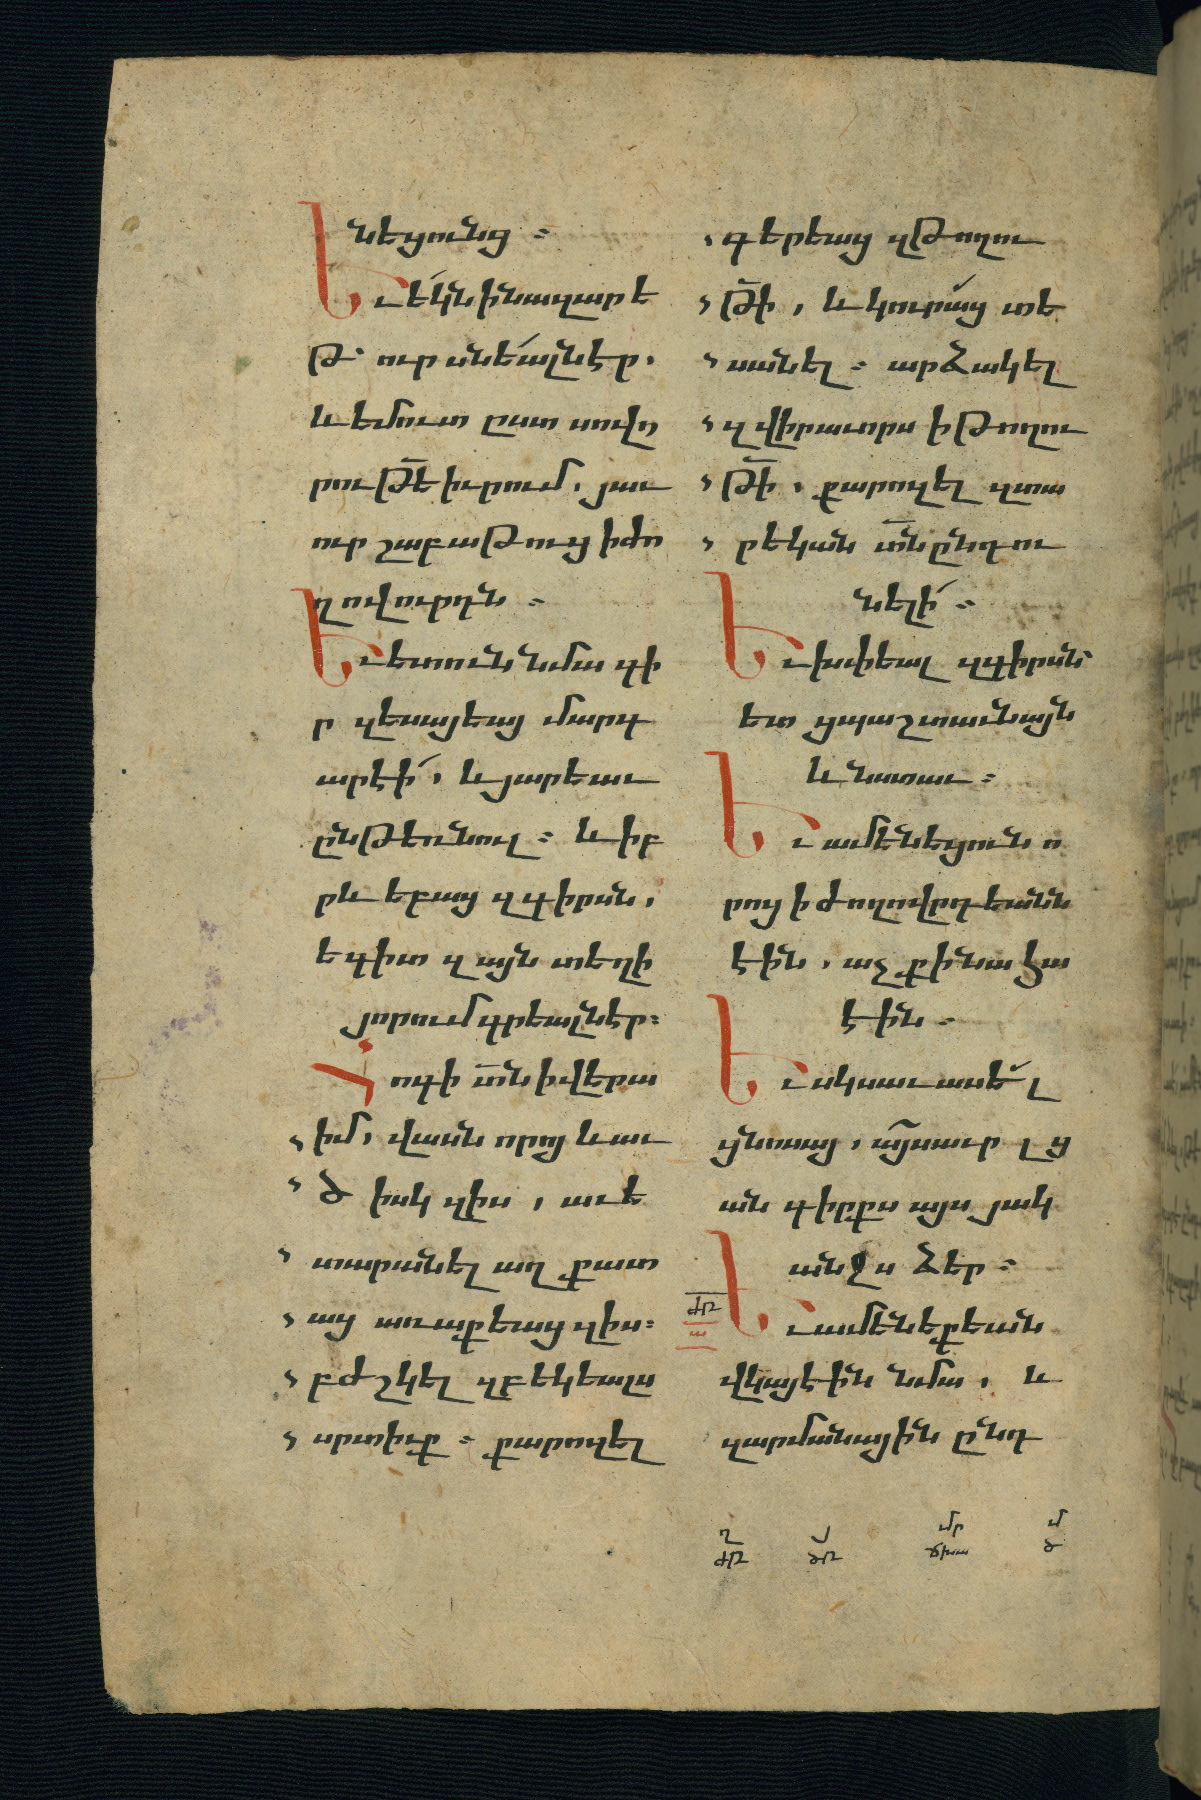 նեցունց ։
Եւ եկն ի նազարէ
թ՝ ուր սնեալն էր.
և եմուտ ըստ սովո
րութե̅ իւրում. յաւ
ուր շաբաթուց ի ժո
ղովուրդն ։
Եւ ետուն նմա գի
ր զեսայեայ մարգ
արէի, և յարեաւ
ընթեռնուլ ։ և իբ
րև եբաց զգիրսն,
եգիտ զայն տեղի
յորում գրեալն էր։
Հոգի տն̅ ի վերա
իմ, վասն որոյ և աւ
ծ իսկ զիս, աւե
տարանել աղքատ
աց առաքեաց զիս։
բժշկել զբեկեալս
սրտիւք ։ քարոզել
գերեաց զթողու
թի̅, և կուրաց տե
սանել ։ արձակել
զվիրաւորս ի թողու
թի̅, քարոզել զտա
րեկան տն̅ ընդու
նելի ։
Եւ խփեալ զգիրսն՝
ետ ցպաշտաւնայն
և նստաւ ։
Եւ ամենեցուն ո
րոց ի ժողովրդեանն
էին, աչք ի նա հա
էին ։
Եւ սկսաւ ասել
ցնոսայ, այսաւր լց
ան գիրքս այս յակ
անջս ձեր ։
ժԸ
ա
Եւ ամենեքեան
վկայէին նմա, և
զարմանային ընդ